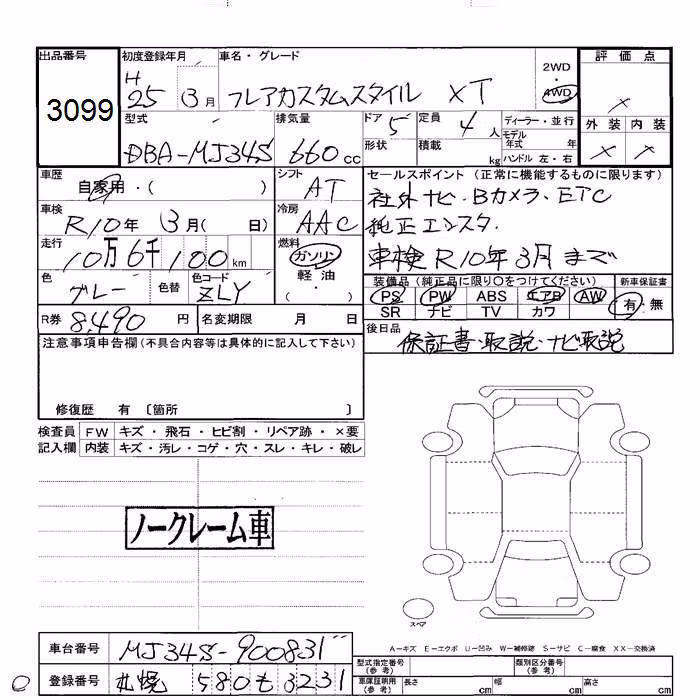 出品番号 初度登録年月 車名・グレード 2WD 評価点
3099 H25 3月 フレアカスタムスタイル XT 4WD ×
型式 排気量 ドア 5 定員 4人 ディーラー・並行 外装 内装
DBA-MJ34S 660cc 形状 積載 kg モデル年式 年 × ×
ハンドル 左・右
車歴 自家用・( ) シフト AT セールスポイント (正常に機能するものに限ります)
社外ナビ・Bカメラ・ETC
車検 R10年 3月( 日) 冷房 AAC 純正エンスタ
走行 10万6千100km 燃料 ガソリン・軽油・( ) 車検R10年3月まで
色 グレー 色替 色コード ZLY 装備品 (純正品に限り○をつけてください) 新車保証書
PS PW ABS エアB AW 有・無
R券 8,490円 名変期限 月 日 SR ナビ TV カワ
後日品 保証書・取説・ナビ取説
注意事項申告欄(不具合内容等は具体的に記入して下さい)
修復歴 有 〔箇所 〕
検査員 FW キズ・飛石・ヒビ割・リペア跡・×要
記入欄 内装 キズ・汚レ・コゲ・穴・スレ・キレ・破レ
ノークレーム車
スペア
A-キズ E-エクボ U-凹み W-補修跡 S-サビ C-腐食 XX-交換済
車台番号 MJ34S-900831
型式指定番号(参考) 類別区分番号(参考)
登録番号 札幌 580 も 3231
車庫証明用(参考) 長さ cm 幅 cm 高さ cm